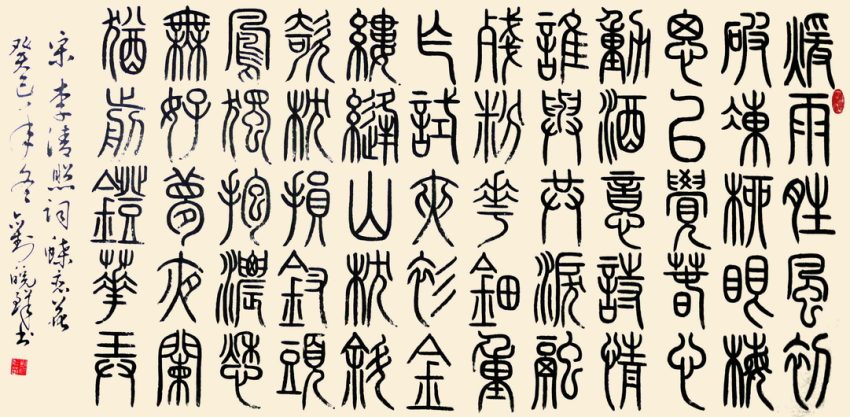 煖雨晴風初
破凍柳眼梅
思已覺春心
動酒意詩情
誰與共淚融
殘粉華鈿重
乍試夾衫金
縷縫山枕斜
欹枕損釵頭
鳳獨抱濃愁
無好夢夜闌
猶剪鐙華弄
宋李清照詞蝶恋花
癸巳年冬劉曉书